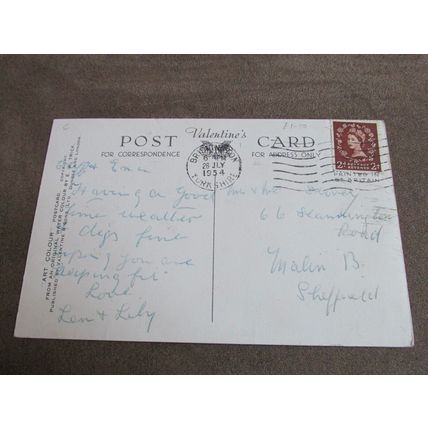 Valentine's
POST CARD
FOR CORRESPONDENCE
FOR ADDRESS ONLY
BRIDLINGTON
6-PM
26 JLY
1954
YORKSHIRE
POSTAGE REVENUE
2D 2D
PRINTED IN
GT BRITAIN
"ART COLOUR" POSTCARD.
FROM AN ORIGINAL WATER COLOUR BY
PUBLISHED BY VALENTINE & SONS, LTD., DUNDEE AND LONDON
Having a Good
time weather
fine
hoping you are
keeping fit
Love
Len & Lily
Mr & Mrs
66
Road
Malin B.
Sheffield